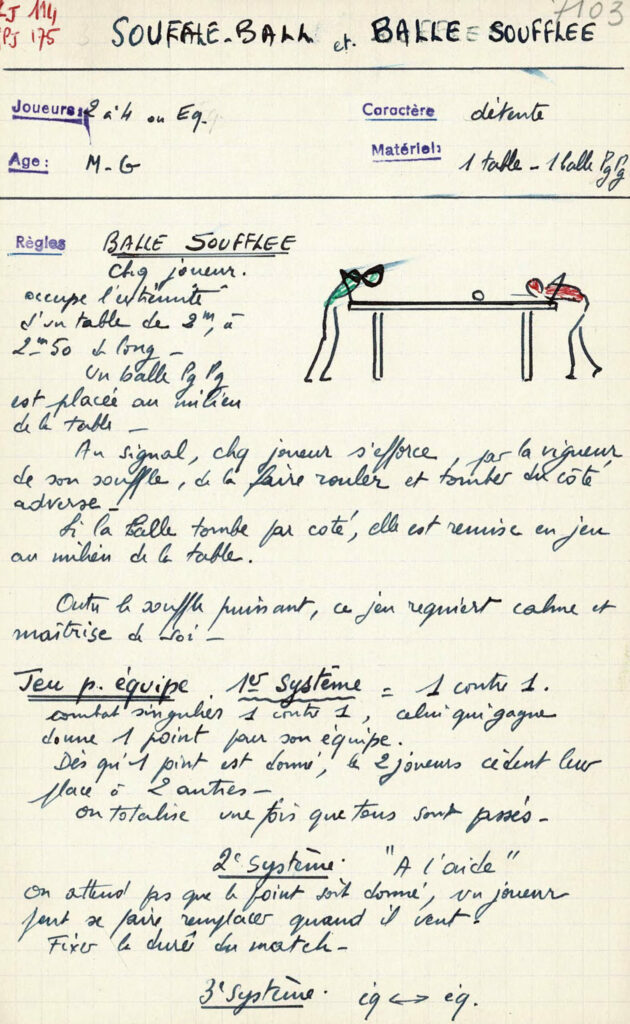 LJ 114
PJ 175
7103
SOUFFLE-BALL et BALLE SOUFFLEE
Joueurs: 2 à 4 ou Eq.
Caractère détente
Age: M-G
Matériel: 1 table - 1 balle Pg Pg
Règles BALLE SOUFFLEE
Chq joueur.
occupe l'extrémité
d'un table de 2m, à
2m50 de long -
Un balle Pg Pg
est placée au milieu
de la table -
Au signal, chq joueur s'efforce, par la vigueur
de son souffle, de la faire rouler et tomber du côté
adverse -
Si la Balle tombe par coté, elle est remise en jeu
au milieu de la table.
Outre le souffle puissant, ce jeu requiert calme et
maîtrise de soi -
Jeu p. équipe. 1er Système = 1 contre 1.
combat singulier 1 contre 1, celui qui gagne
donne 1 point pour son équipe.
Dès qu'1 point est donné, les 2 joueurs cèdent leur
place à 2 autres -
on totalise une fois que tous sont passés -
2e Système. "A l'aide"
On attend pas que le point soit donné, un joueur
peut se faire remplacer quand il veut.
Fixer la durée du match -
3e Système. éq <-> éq.